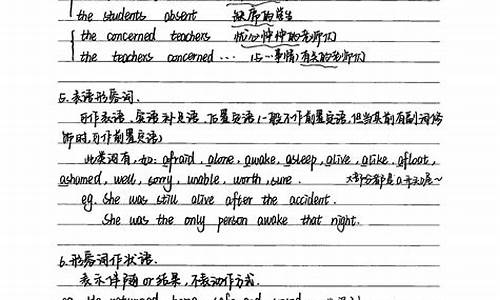 the students absent 缺席的学生
the concerned teachers 忧心忡忡的老师们
the teachers concerned ... (与…事情)有关的老师们
5. 表语形容词.
可作表语、宾语补足语、后置定语(一般不作前置定语,但当其前有副词修
饰时,可作前置定语)
此类词有,如:afraid, alone, awake, asleep, alive, alike, afloat,
ashamed, well, sorry, unable, worth, sure. 大部分都是a开头
eg. She was still alive after the accident.
She was the only person awake that night.
6. 形容词作状语.
表示伴随or结果,不表动作方式.
eg. He returned home safe and